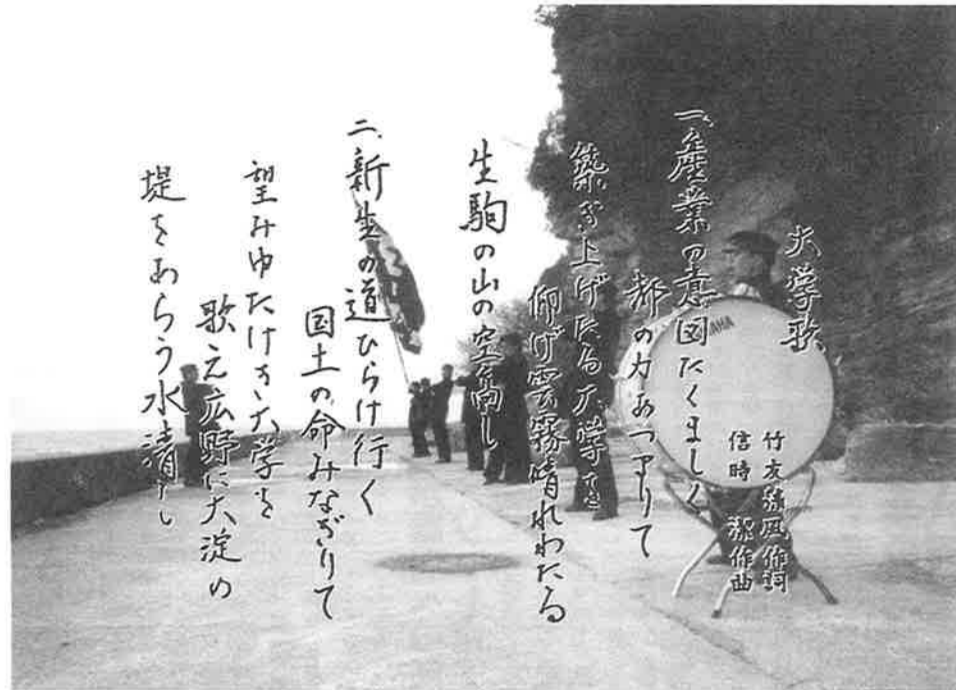 大学歌
竹友藻風作詞
信時 潔作曲
一、産業の意図たくましく
都の力あつまりて
築き上げたる大学を
仰げ雲霧晴れわたる
生駒の山の空高し
二、新生の道ひらけ行く
国土の命みなぎりて
望みゆたけき大学を
歌え広野に大淀の
堤をあらう水清し
YAMAHA